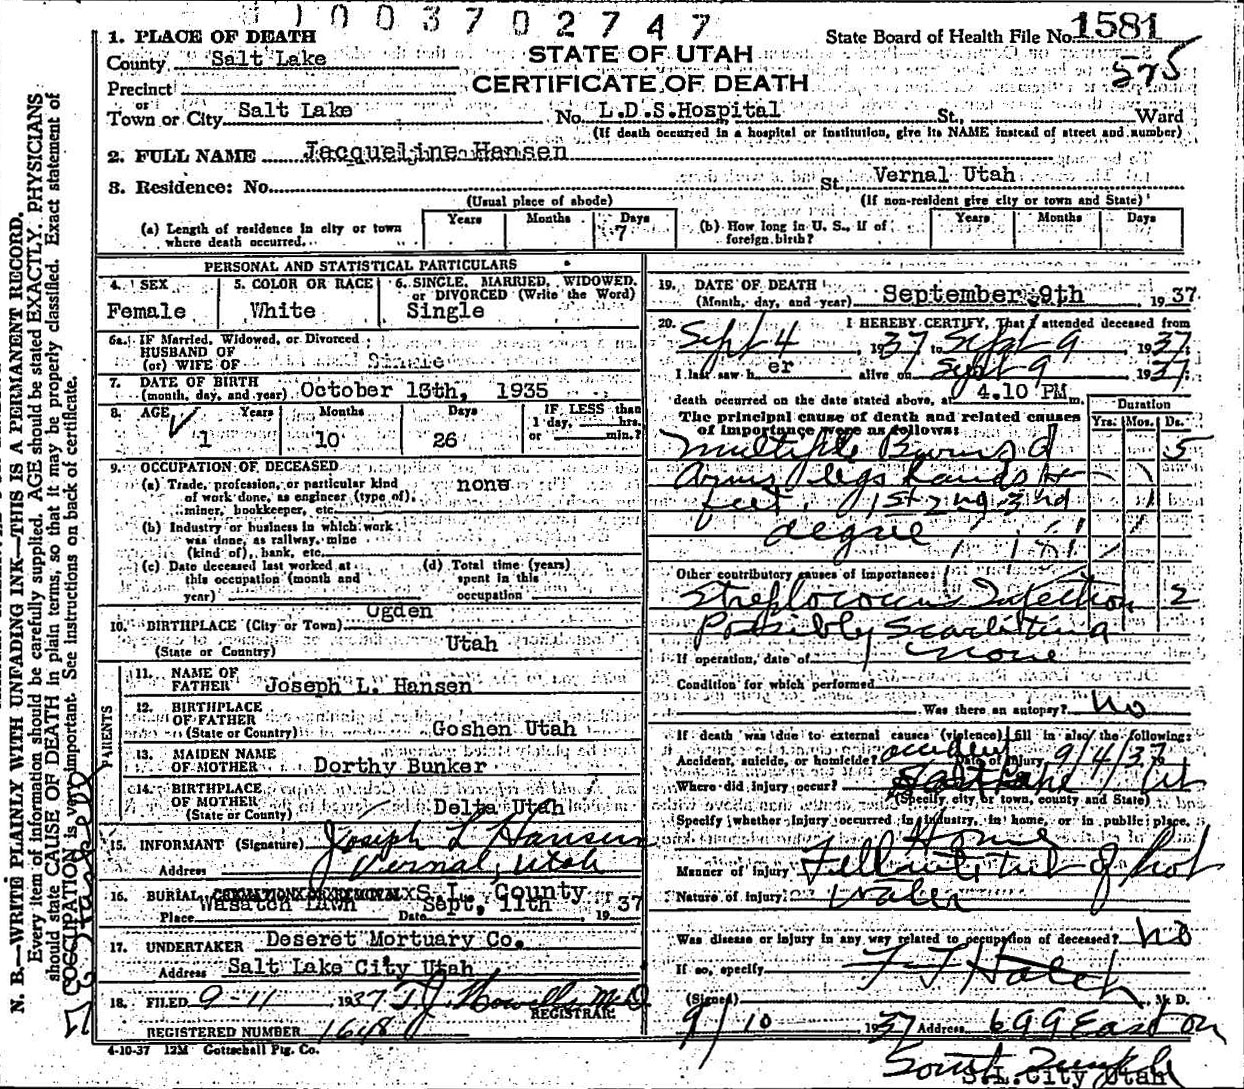 1003702747
1. PLACE OF DEATH
State Board of Health File No. 1581
County Salt Lake
STATE OF UTAH
575
Precinct
CERTIFICATE OF DEATH
or
Town or City Salt Lake No. L.D.S. Hospital St., Ward
(If death occurred in a hospital or institution, give its NAME instead of street and number)
2. FULL NAME Jacqueline Hansen
3. Residence: No. St. Vernal Utah
(Usual place of abode) (If non-resident give city or town and State)
(a) Length of residence in city or town where death occurred. Years Months Days 7
(b) How long in U. S., if of foreign birth? Years Months Days
PERSONAL AND STATISTICAL PARTICULARS
4. SEX 5. COLOR OR RACE 6. SINGLE, MARRIED, WIDOWED, or DIVORCED (Write the Word)
Female White Single
6a. IF Married, Widowed, or Divorced
HUSBAND OF
(or) WIFE OF Single
7. DATE OF BIRTH
(month, day, and year) October 13th, 1935
8. AGE Years Months Days IF LESS than 1 day, hrs. or min.?
1 10 26
9. OCCUPATION OF DECEASED
(a) Trade, profession, or particular kind of work done, as engineer (type of), miner, bookkeeper, etc. none
(b) Industry or business in which work was done, as railway, mine (kind of), bank, etc.
(c) Date deceased last worked at this occupation (month and year)
(d) Total time (years) spent in this occupation
10. BIRTHPLACE (City or Town) Ogden
(State or Country) Utah
PARENTS
11. NAME OF FATHER Joseph L. Hansen
12. BIRTHPLACE OF FATHER
(State or Country) Goshen Utah
13. MAIDEN NAME OF MOTHER Dorthy Bunker
14. BIRTHPLACE OF MOTHER
(State or County) Delta Utah
15. INFORMANT (Signature) Joseph L Hansen
Address Vernal, Utah
16. BURIAL, CREMATION OR REMOVAL S.L. County
Place Wasatch Lawn Date Sept, 11th 1937
17. UNDERTAKER Deseret Mortuary Co.
Address Salt Lake City Utah
18. FILED 9-11, 1937 T.J. Howells M.D.
REGISTRAR
REGISTERED NUMBER 1648
4-10-37 12M Gottschall Ptg. Co.
19. DATE OF DEATH
(Month, day, and year) September 9th, 1937
20. I HEREBY CERTIFY, That I attended deceased from
Sept 4, 1937 to Sept 9, 1937
I last saw her alive on Sept 9, 1937
death occurred on the date stated above, at 4.10 PM m.
The principal cause of death and related causes of importance were as follows:
Duration
Yrs. Mos. Ds.
Multiple Burns of 5
Arms legs hands +
feet. 1st 2nd 3rd
degree
Other contributory causes of importance:
Streptococcus Infection 2
Possibly Scarlatina
If operation, date of none
Condition for which performed
Was there an autopsy? No
If death was due to external causes (violence) fill in also the following:
Accident, suicide, or homicide? accident Date of injury 9/4/37
Where did injury occur? Salt Lake Ut
(Specify city or town, county and State)
Specify whether injury occurred in industry, in home, or in public place.
Home
Manner of injury Fell into tub of hot
Nature of injury Water
Was disease or injury in any way related to occupation of deceased? No
If so, specify
(Signed) F J Hatch, M. D.
9/10, 1937 Address 699 East on
South Temple
S.L. City Utah
N. B.—WRITE PLAINLY WITH UNFADING INK—THIS IS A PERMANENT RECORD.
Every item of information should be carefully supplied. AGE should be stated EXACTLY. PHYSICIANS
should state CAUSE OF DEATH in plain terms, so that it may be properly classified. Exact statement of
OCCUPATION is very important. See instructions on back of certificate.